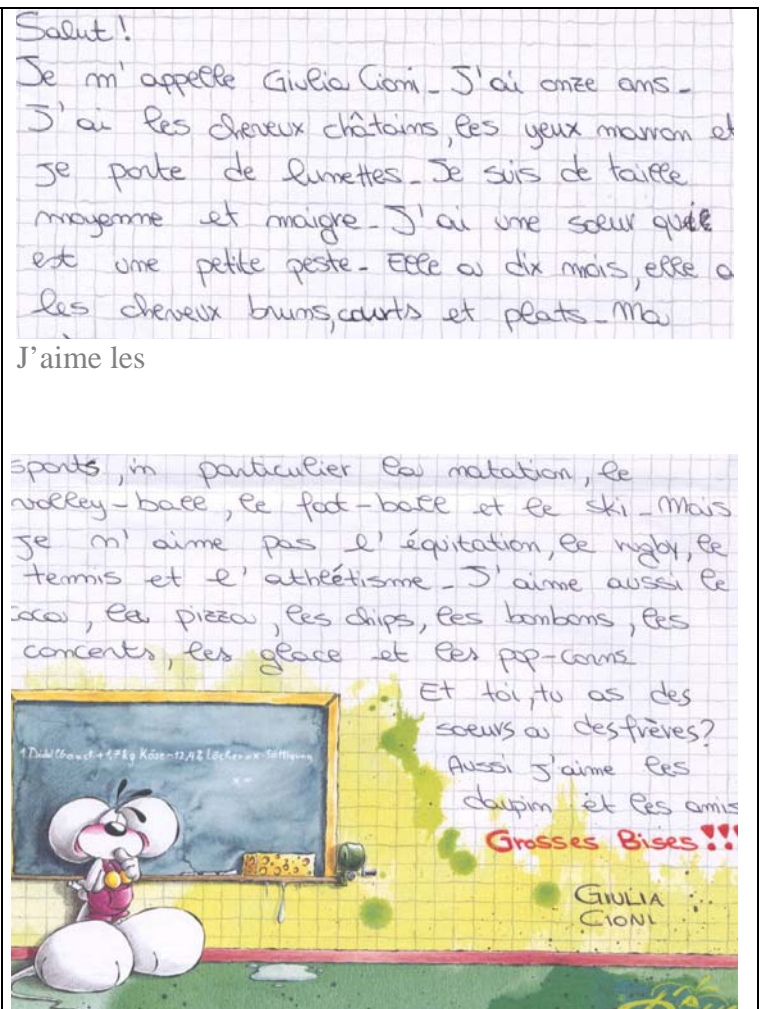 Salut!
Je m'appelle Giulia Cioni_ J'ai onze ans_
J'ai les cheveux châtains, les yeux marron et
je porte de lunettes_ Je suis de taille
moyenne et maigre_ J'ai une soeur qui
est une petite peste_ Elle a dix mois, elle a
les cheveux bruns, courts et plats_ Ma
J'aime les
sports, in particulier la natation, le
volley-ball, le foot-ball et le ski_ Mais
je n'aime pas l'équitation, le rugby, le
tennis et l'athlétisme_ J'aime aussi le
coca, la pizza, les chips, les bonbons, les
concerts, les glace et les pop-corns
Et toi, tu as des
soeurs ou des frères?
Aussi j'aime les
daupin et les amis
Grosses Bises!!!
GIULIA
CIONI